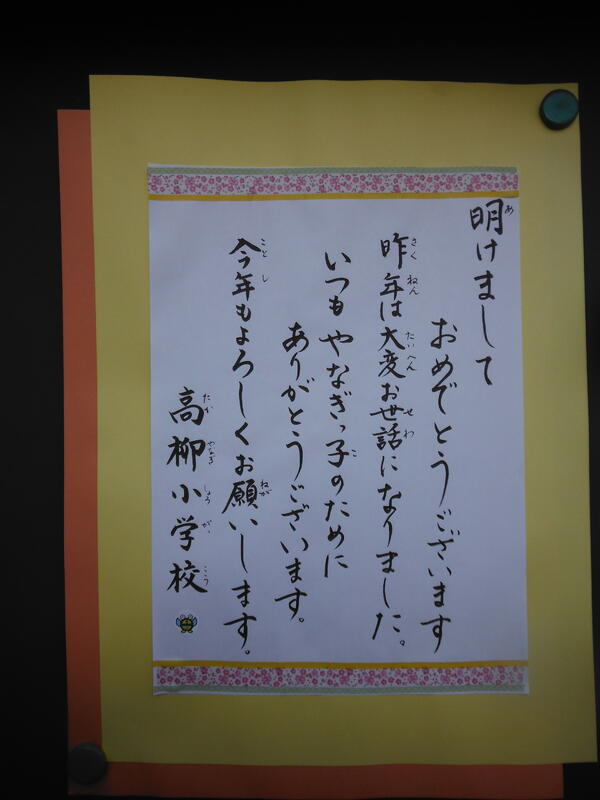 明けまして
おめでとうございます
昨年は大変お世話になりました。
いつもやなぎっ子のために
ありがとうございます。
今年もよろしくお願いします。
高柳小学校